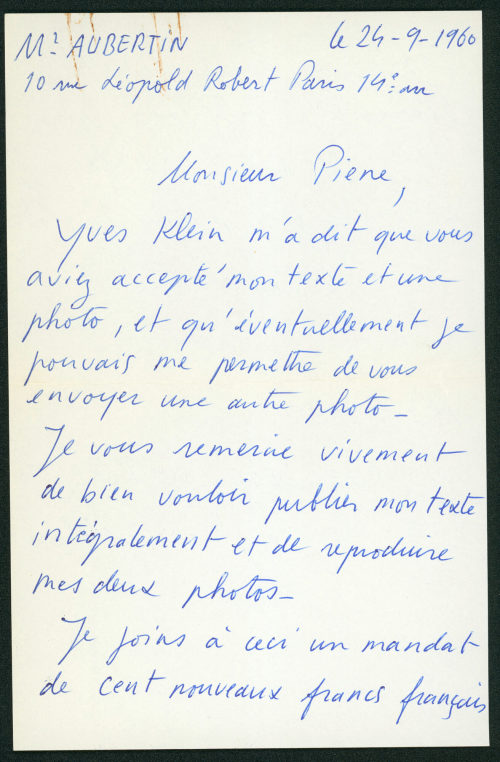 Mr AUBERTIN le 24-9-1960
10 rue Léopold Robert Paris 14e arr
Monsieur Piene,
Yves Klein m'a dit que vous
aviez accepté mon texte et une
photo, et qu'éventuellement je
pouvais me permettre de vous
envoyer une autre photo_
Je vous remercie vivement
de bien vouloir publier mon texte
intégralement et de reproduire
mes deux photos_
Je joins à ceci un mandat
de cent nouveaux francs français